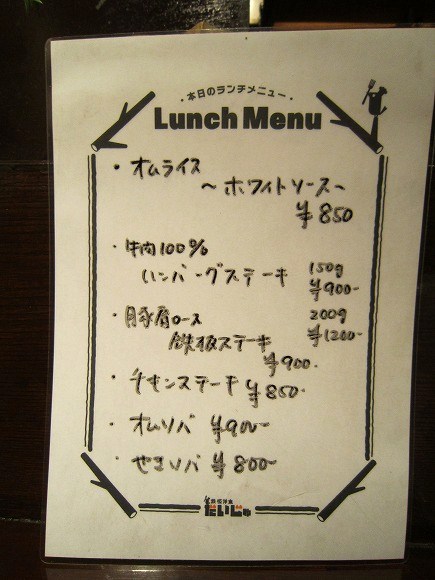 ・本日のランチメニュー・
Lunch Menu
・オムライス
〜ホワイトソース〜
¥850
・牛肉100%
ハンバーグステーキ 150g
¥900-
・豚肩ロース 200g
鉄板ステーキ ¥1200-
¥900-
・チキンステーキ ¥850-
・オムソバ ¥900-
・やきソバ ¥800-
鉄板洋食
だいじゅ